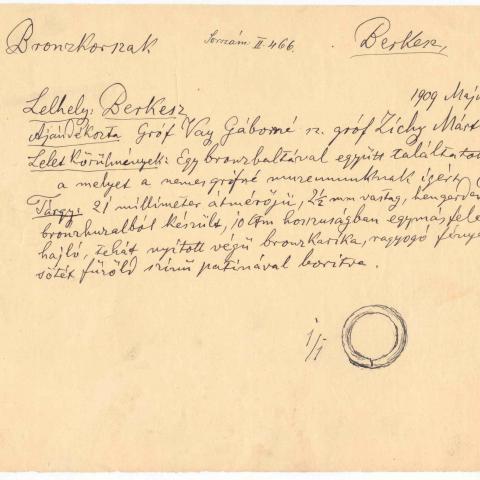 Bronzkorszak
Sorszám II. 466.
Berkesz,
Lelhely: Berkesz
1909 Máju
Ajándékozta Gróf Vay Gáborné sz. gróf Zichy Márt
Lelet Körülmények: Egy bronzbaltával együtt találtatott
a melyet a nemes grófné muzeumunknak igért
Tárgy: 21 milliméter átmérőjü, 2½ mm vastag, hengerded
bronzhuzalból készült, 10 c/m hosszuságban egymásfelé
hajló, tehát nyitott végű bronzkarika, ragyogó fénye
sötét fűzöld szinű patinával boritva.
1/1